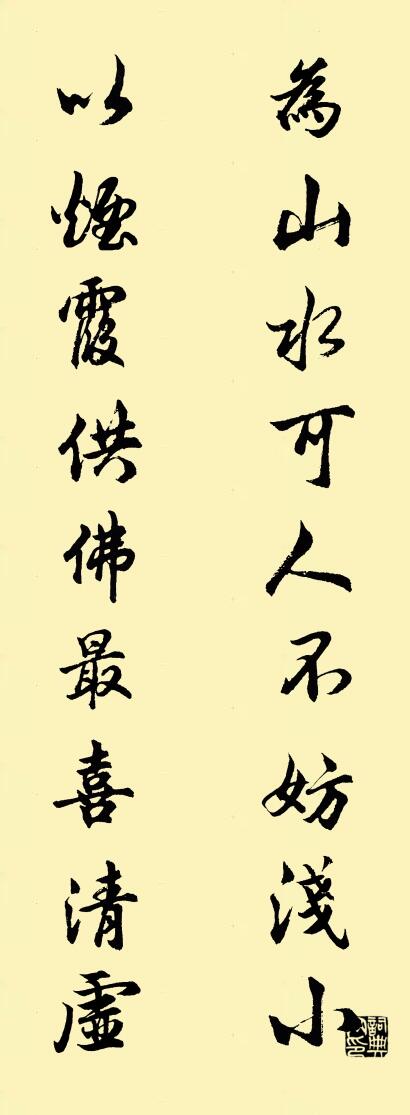 為山水可人不妨淺小
以煙霞供佛最喜清虛